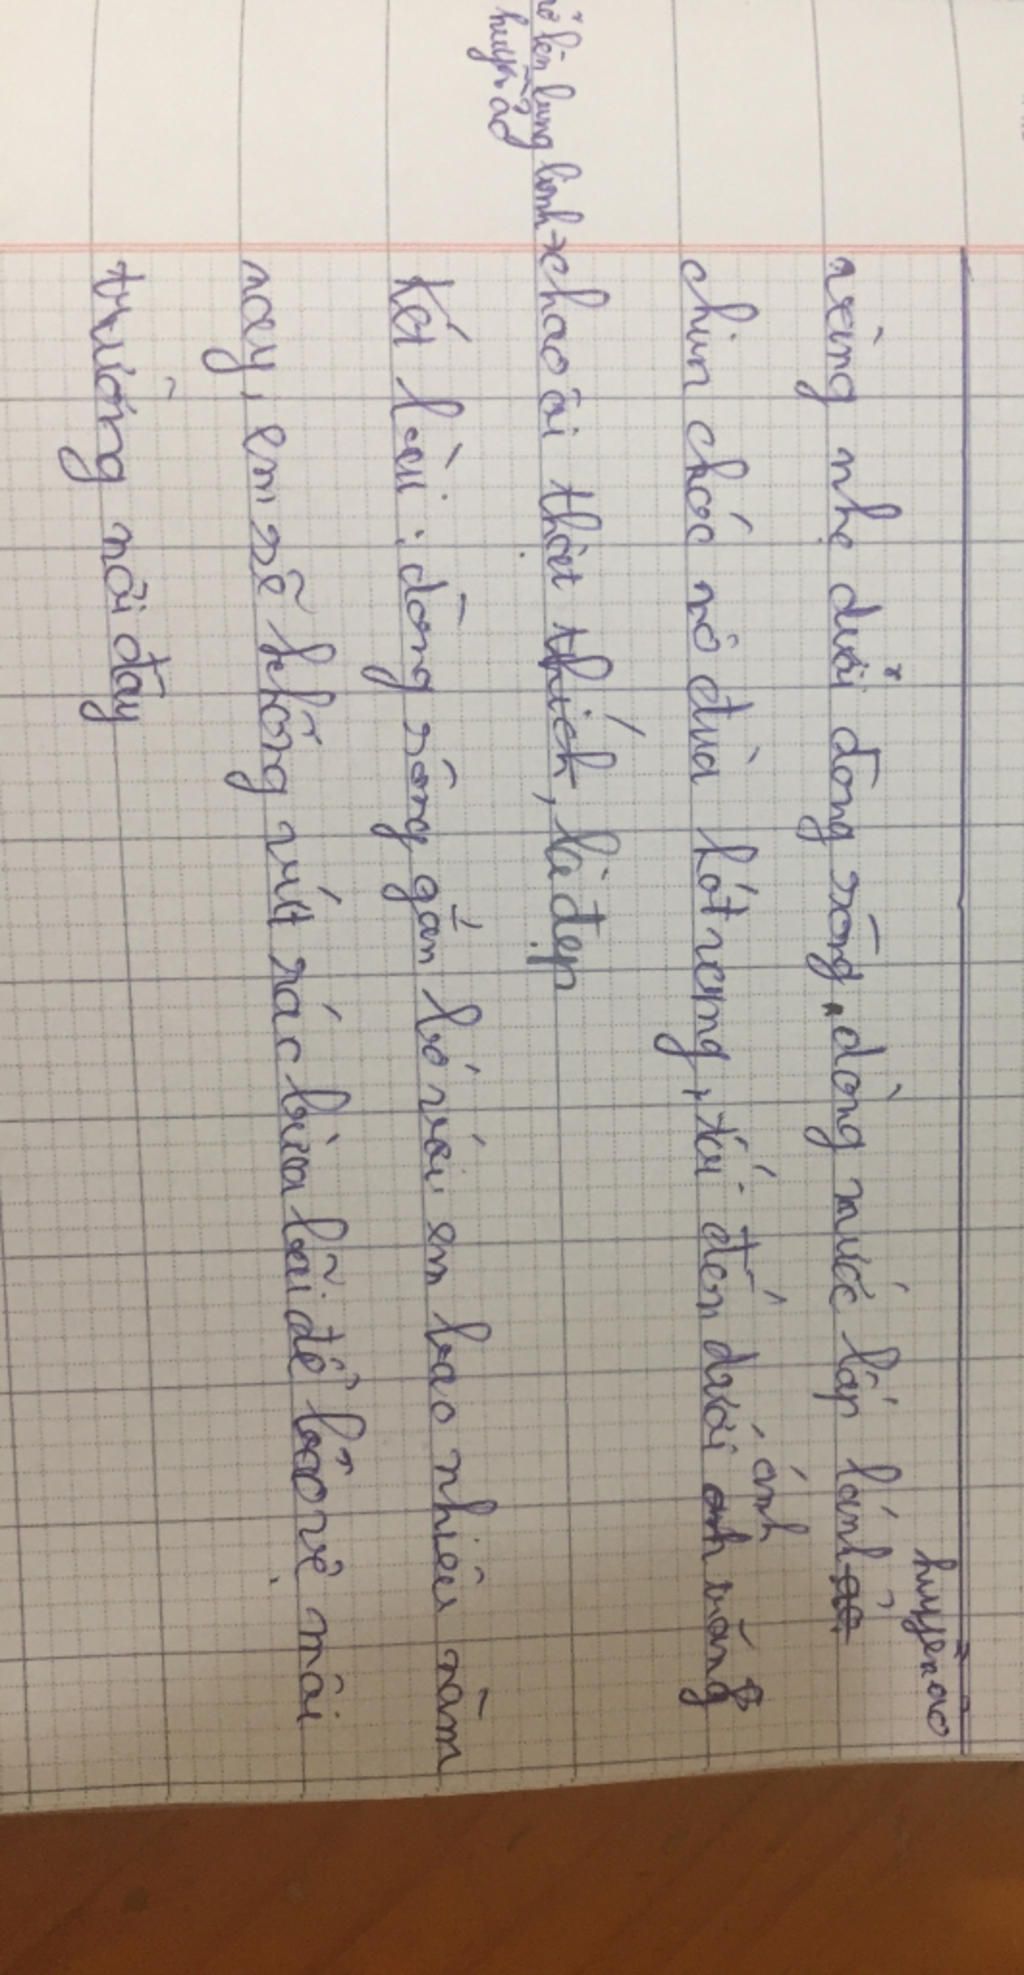 huyền ảo
vàng nhẹ dưới dòng sông, dòng nước lấp lánh
ánh
chim chóc nô đùa hót vang, tới đến dưới anh trăng
lên lung linh chao ôi thật thích, là đẹp
huyền ảo
Kết lại: dòng sông gắn bó với em bao nhiêu năm
nay, em sẽ không vứt rác bừa bãi để bảo vệ môi
trường nơi đây